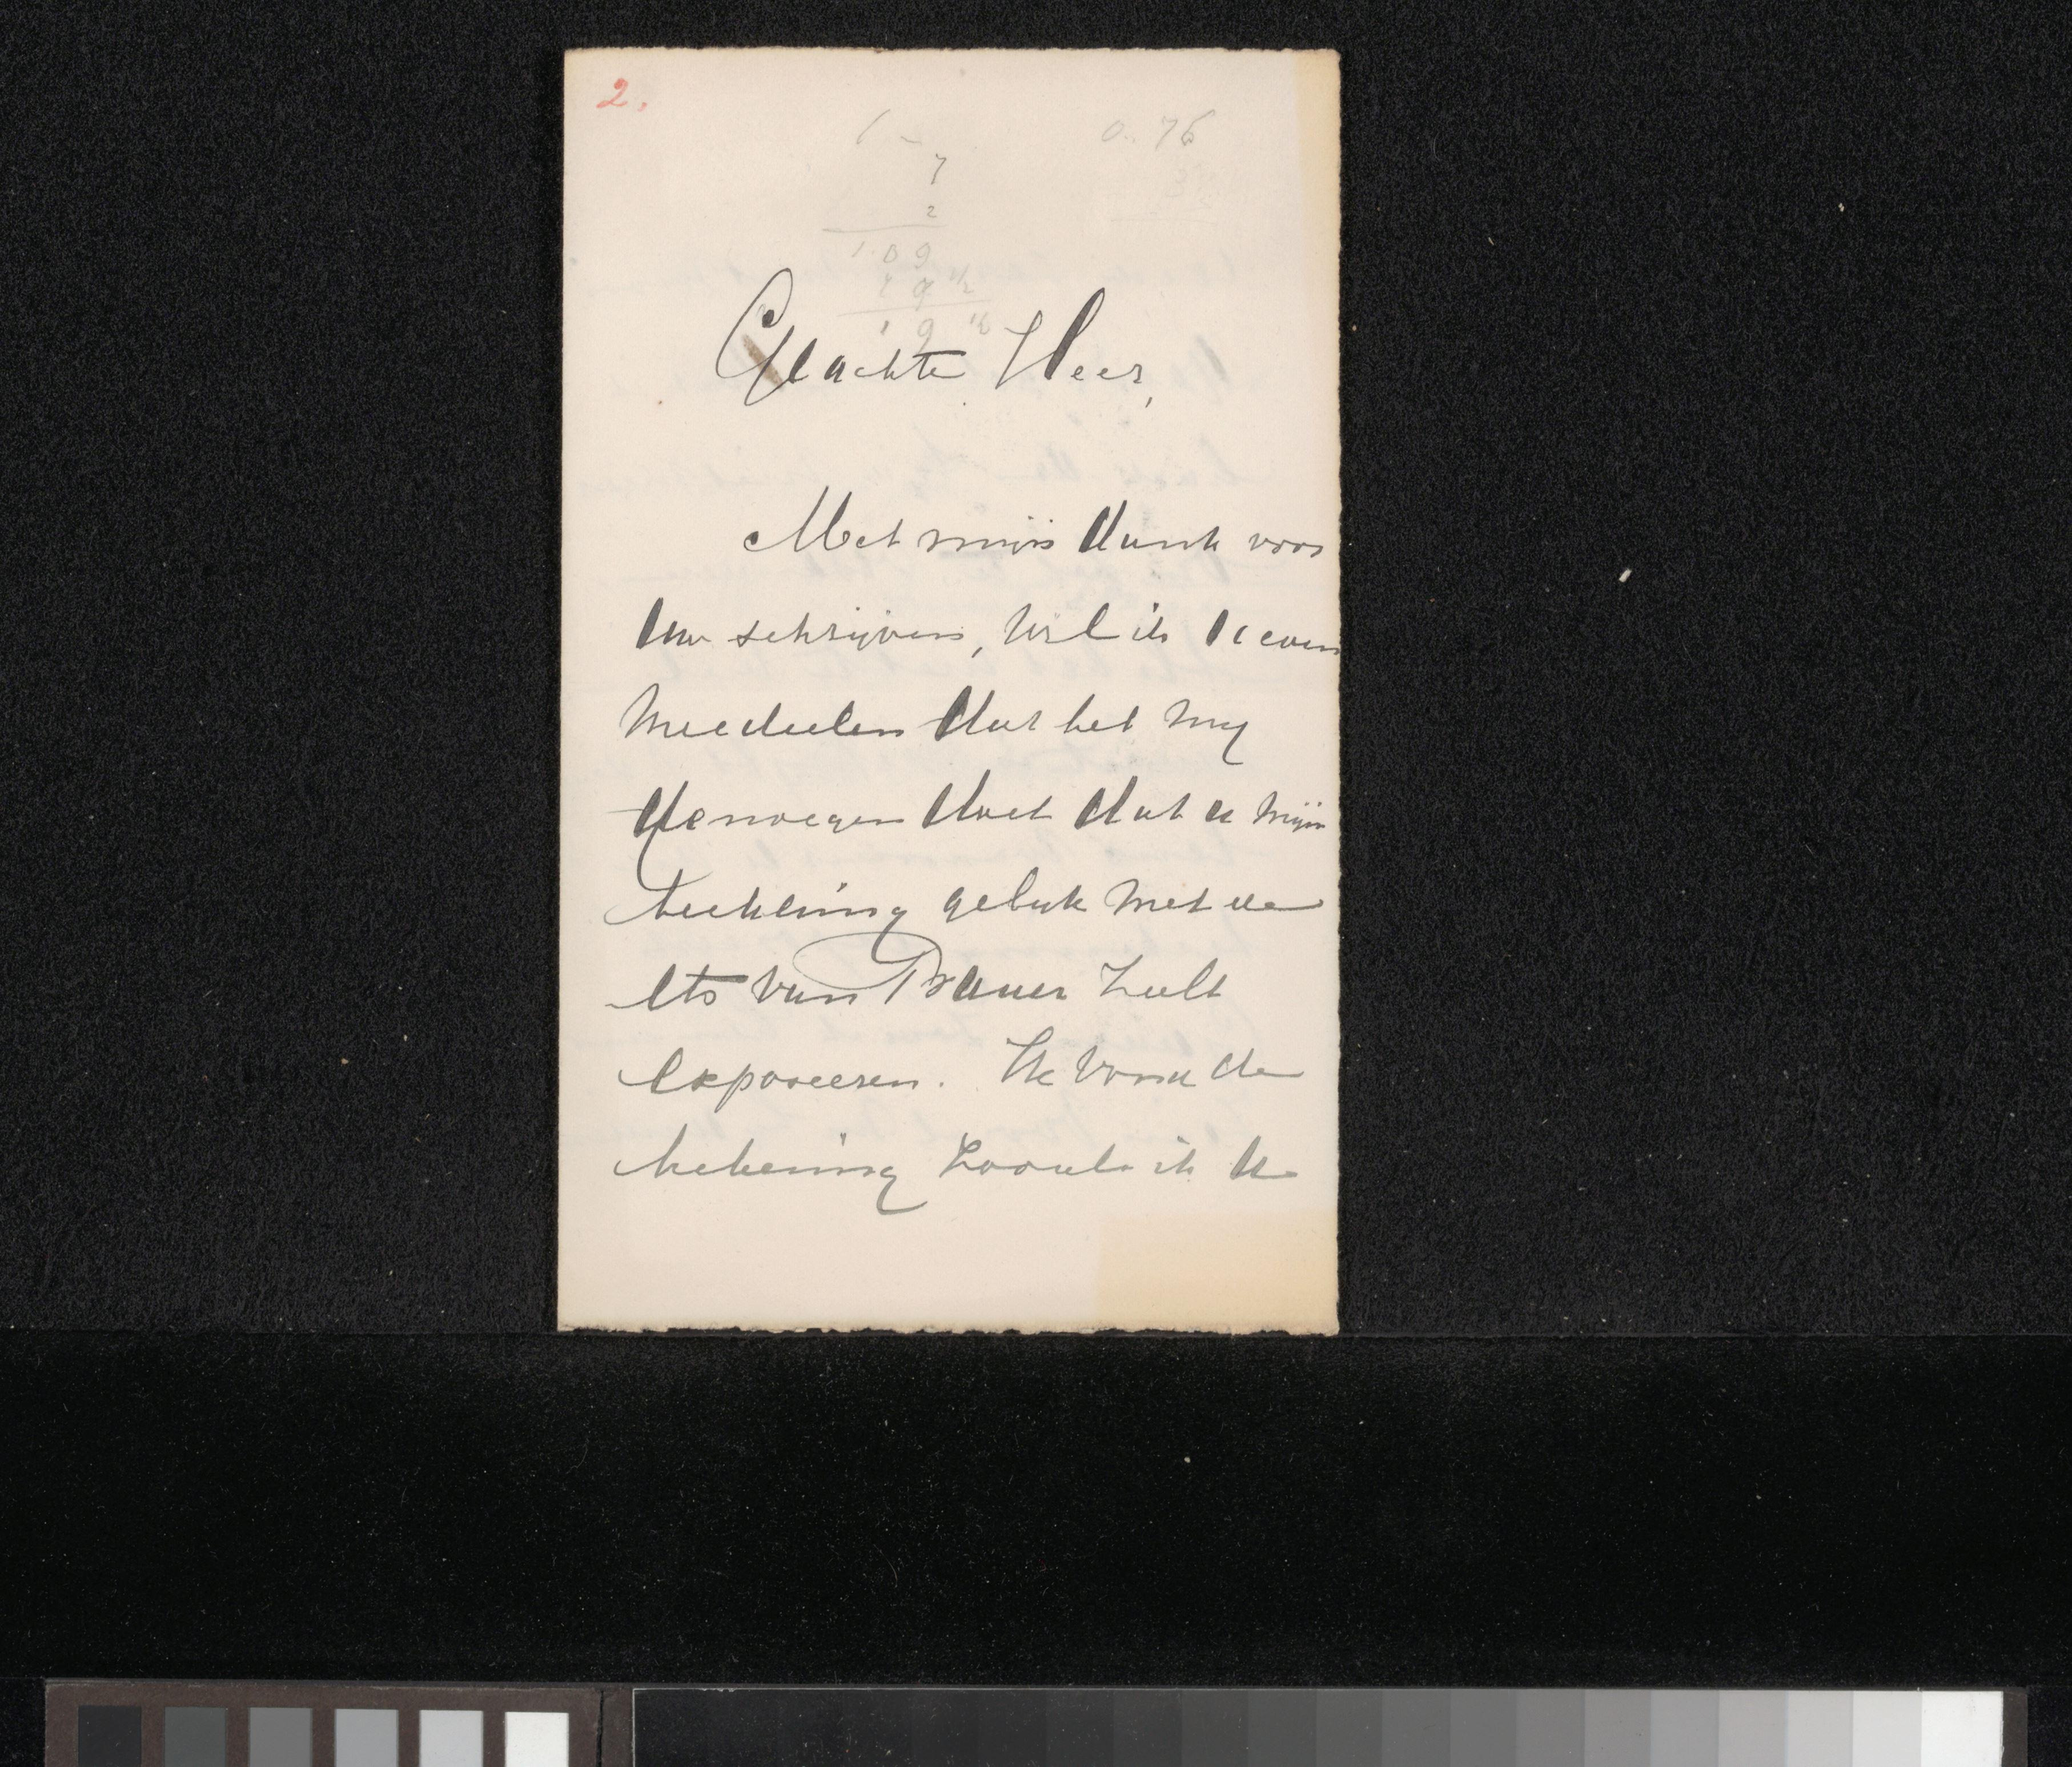 2.
0.76
7
2
109
Geachte Heer,
Met mijn dank voor
uw schrijven, wil ik u even
meedeelen dat het mij
genoegen doet dat u mijn
teekening gelijk met de
ets van Bauer zult
exposeeren. Ik vond de
tekening zooals ik u